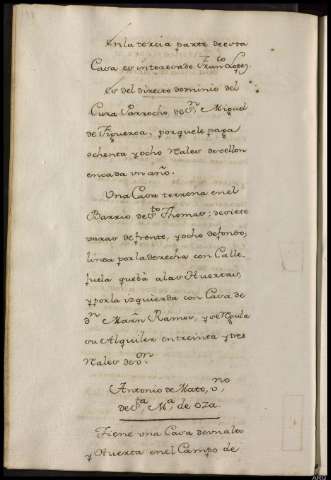 En la tercia parte de esta
Casa es interesado Franco Lopez.
Es del directo dominio del
Cura Parrocho de Sn. Miguel
de Figueroa; porquele paga
ochenta y ocho Reales de vellon
encada un año.
Una Casa terrena en el
Barrio de Sto. Thomas; de siete
varas de frente, y ocho de fondo;
linea por la derecha con Calle,
juela que bá a las Huertas;
y por la izquierda con Casa de
Dn. Marin Ramos, y se Regula
su Alquiler en treinta y tres
Reales de von.
Antonio de Mato, vno.
de Sta. Ma. de Oza
Tiene una Casa de un alto
y Huerta en el Campo de